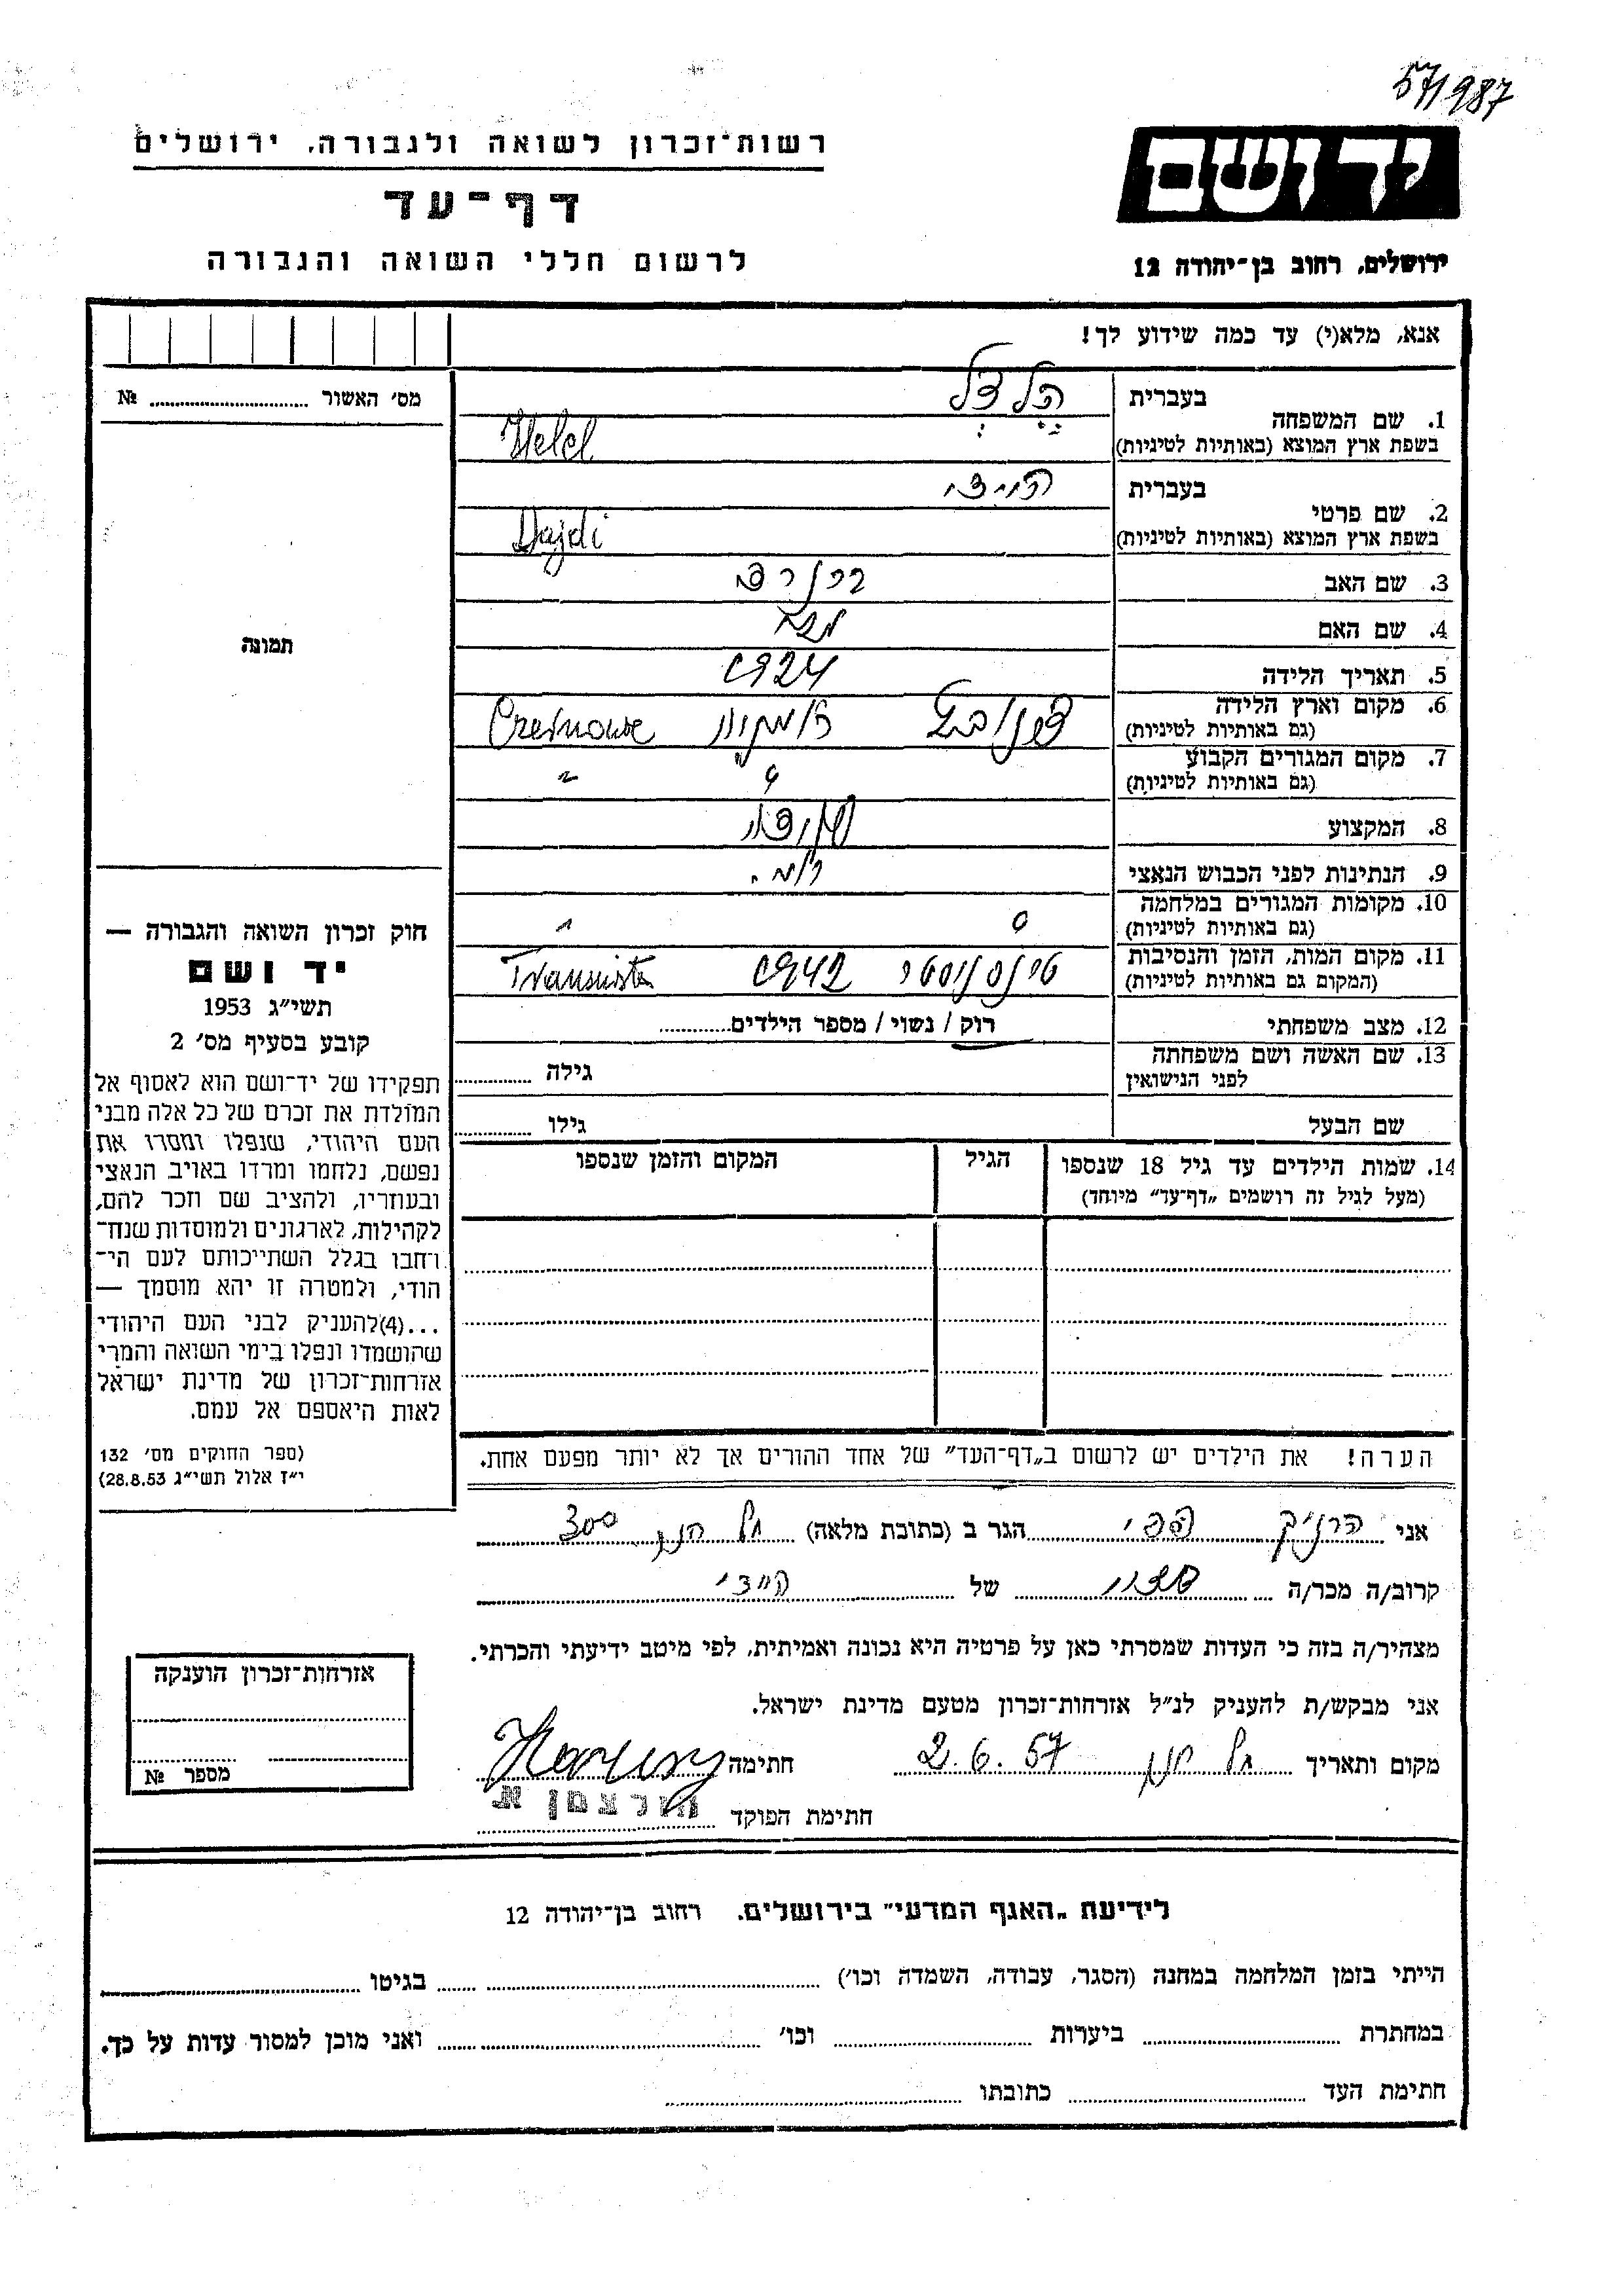 57/987
רשות־זכרון לשואה ולגבורה, ירושלים
דף־עד
לרשום חללי השואה והגבורה
יד ושם
ירושלים, רחוב בן־יהודה 12
אנא, מלא(י) עד כמה שידוע לך!
מס׳ האשור № ....................
1. שם המשפחה
בעברית
בשפת ארץ המוצא (באותיות לטיניות) Helel
2. שם פרטי
בעברית
בשפת ארץ המוצא (באותיות לטיניות) Dajdi
3. שם האב
4. שם האם
5. תאריך הלידה 1924
6. מקום וארץ הלידה
(גם באותיות לטיניות)
7. מקום המגורים הקבוע
(גם באותיות לטיניות) "
8. המקצוע
9. הנתינות לפני הכבוש הנאצי רומ.
10. מקומות המגורים במלחמה
(גם באותיות לטיניות)
11. מקום המות, הזמן והנסיבות 1942
(המקום גם באותיות לטיניות)
12. מצב משפחתי רוק / נשוי / מספר הילדים..........
13. שם האשה ושם משפחתה
לפני הנישואין גילה ..........
שם הבעל גילו ..........
14. שמות הילדים עד גיל 18 שנספו
(מעל לגיל זה רושמים „דף־עד״ מיוחד)
הגיל
המקום והזמן שנספו
הערה! את הילדים יש לרשום ב„דף־העד״ של אחד ההורים אך לא יותר מפעם אחת.
תמונה
חוק זכרון השואה והגבורה —
יד ושם
תשי״ג 1953
קובע בסעיף מס׳ 2
תפקידו של יד־ושם הוא לאסוף אל
המולדת את זכרם של כל אלה מבני
העם היהודי, שנפלו ומסרו את
נפשם, נלחמו ומרדו באויב הנאצי
ובעוזריו, ולהציב שם וזכר להם,
לקהילות, לארגונים ולמוסדות שנח־
רחבו בגלל השתייכותם לעם הי־
הודי, ולמטרה זו יהא מוסמך —
...(4)להעניק לבני העם היהודי
שהושמדו ונפלו בימי השואה והמרי
אזרחות־זכרון של מדינת ישראל
לאות היאספם אל עמם.
(ספר החוקים מס׳ 132
י״ז אלול תשי״ג 28.8.53)
אני הרניק הגר ב (כתובת מלאה) תל חנן 300
קרוב/ה מכר/ה של היידי
מצהיר/ה בזה כי העדות שמסרתי כאן על פרטיה היא נכונה ואמיתית, לפי מיטב ידיעתי והכרתי.
אני מבקש/ת להעניק לנ״ל אזרחות־זכרון מטעם מדינת ישראל.
מקום ותאריך תל חנן 2.6.57 חתימה
חתימת הפוקד
אזרחות־זכרון הוענקה
מספר №
לידיעת „האגף המדעי״ בירושלים. רחוב בן־יהודה 12
הייתי בזמן המלחמה במחנה (הסגר, עבודה, השמדה וכו׳) .................... בגיטו ....................
במחתרת .................... ביערות .................... וכו׳ .................... ואני מוכן למסור עדות על כך.
חתימת העד .................... כתובתו ....................